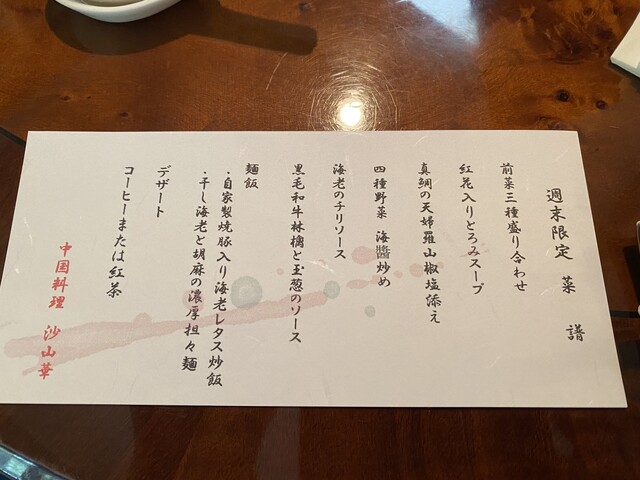 週末限定 菜 譜
前菜三種盛り合わせ
紅花入りとろみスープ
真鯛の天婦羅山椒塩添え
四種野菜 海醬炒め
海老のチリソース
黒毛和牛林檎と玉葱のソース
麺飯
・自家製焼豚入り海老レタス炒飯
・干し海老と胡麻の濃厚担々麺
デザート
コーヒーまたは紅茶
中国料理 沙山華